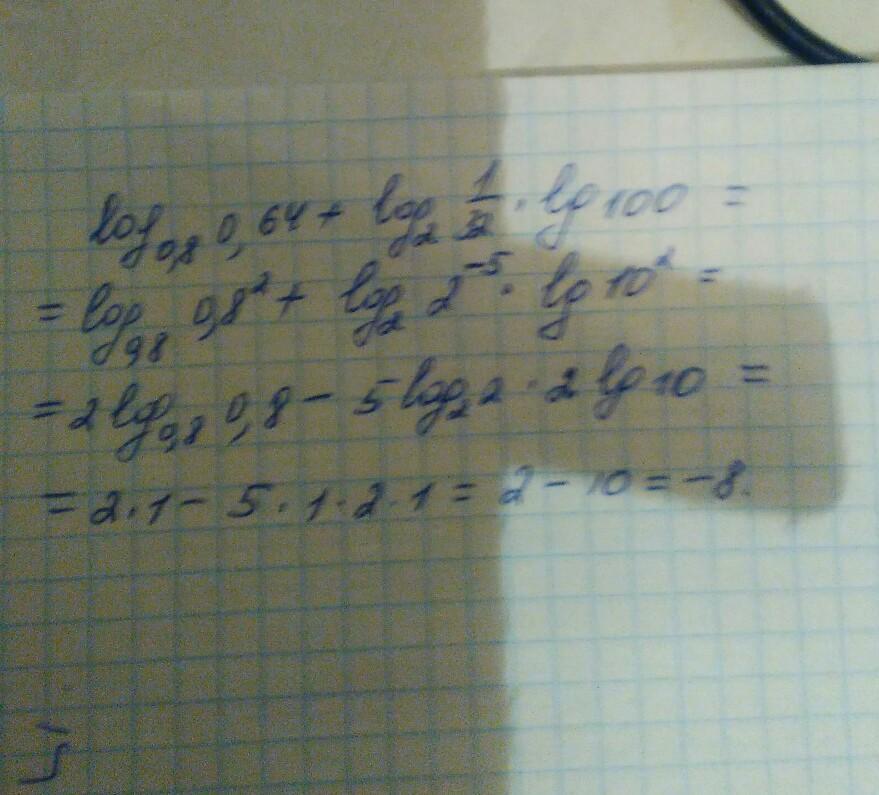 log₀,₈ 0,64 + log₂ 1/32 · lg 100 =
= log₀,₈ 0,8² + log₂ 2⁻⁵ · lg 10² =
= 2 log₀,₈ 0,8 − 5 log₂ 2 · 2 lg 10 =
= 2 · 1 − 5 · 1 · 2 · 1 = 2 − 10 = −8.